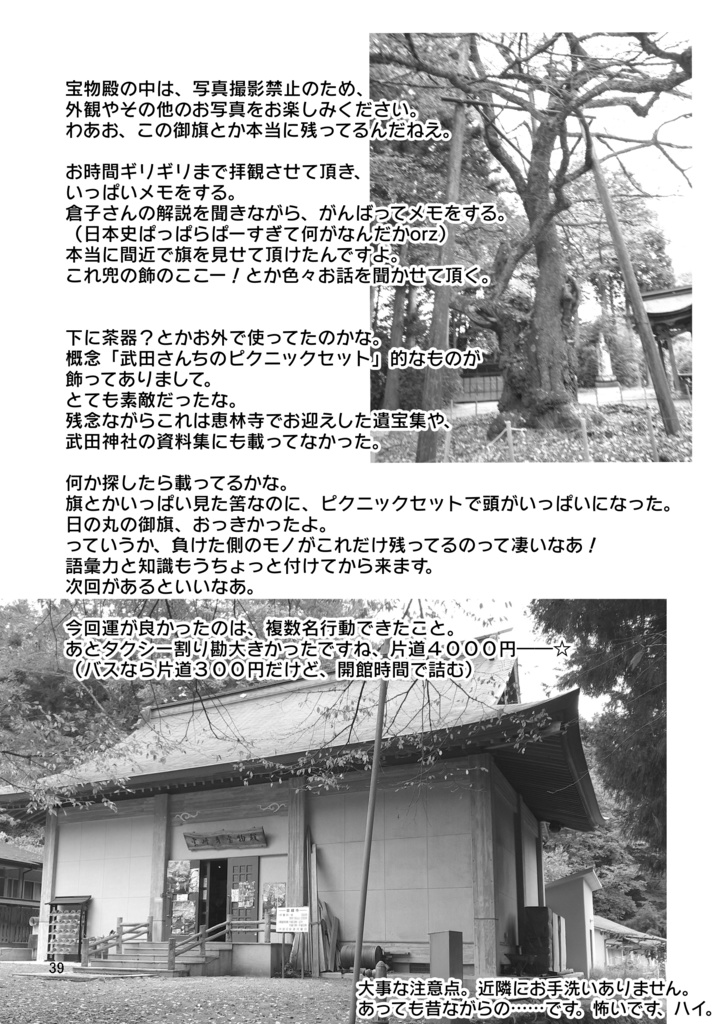 宝物殿の中は、写真撮影禁止のため、
外観やその他のお写真をお楽しみください。
わあお、この御旗とか本当に残ってるんだねえ。
お時間ギリギリまで拝観させて頂き、
いっぱいメモをする。
倉子さんの解説を聞きながら、がんばってメモをする。
（日本史ぱっぱらぱーすぎて何がなんだかorz）
本当に間近で旗を見せて頂けたんですよ。
これ兜の飾のここー！とか色々お話を聞かせて頂く。
下に茶器？とかお外で使ってたのかな。
概念「武田さんちのピクニックセット」的なものが
飾ってありまして。
とても素敵だったな。
残念ながらこれは恵林寺でお迎えした遺宝集や、
武田神社の資料集にも載ってなかった。
何か探したら載ってるかな。
旗とかいっぱい見た筈なのに、ピクニックセットで頭がいっぱいになった。
日の丸の御旗、おっきかったよ。
っていうか、負けた側のモノがこれだけ残ってるのって凄いなあ！
語彙力と知識もうちょっと付けてから来ます。
次回があるといいなあ。
今回運が良かったのは、複数名行動できたこと。
あとタクシー割り勘大きかったですね、片道４０００円――☆
（バスなら片道３００円だけど、開館時間で詰む）
39
大事な注意点。近隣にお手洗いありません。
あっても昔ながらの……です。怖いです、ハイ。